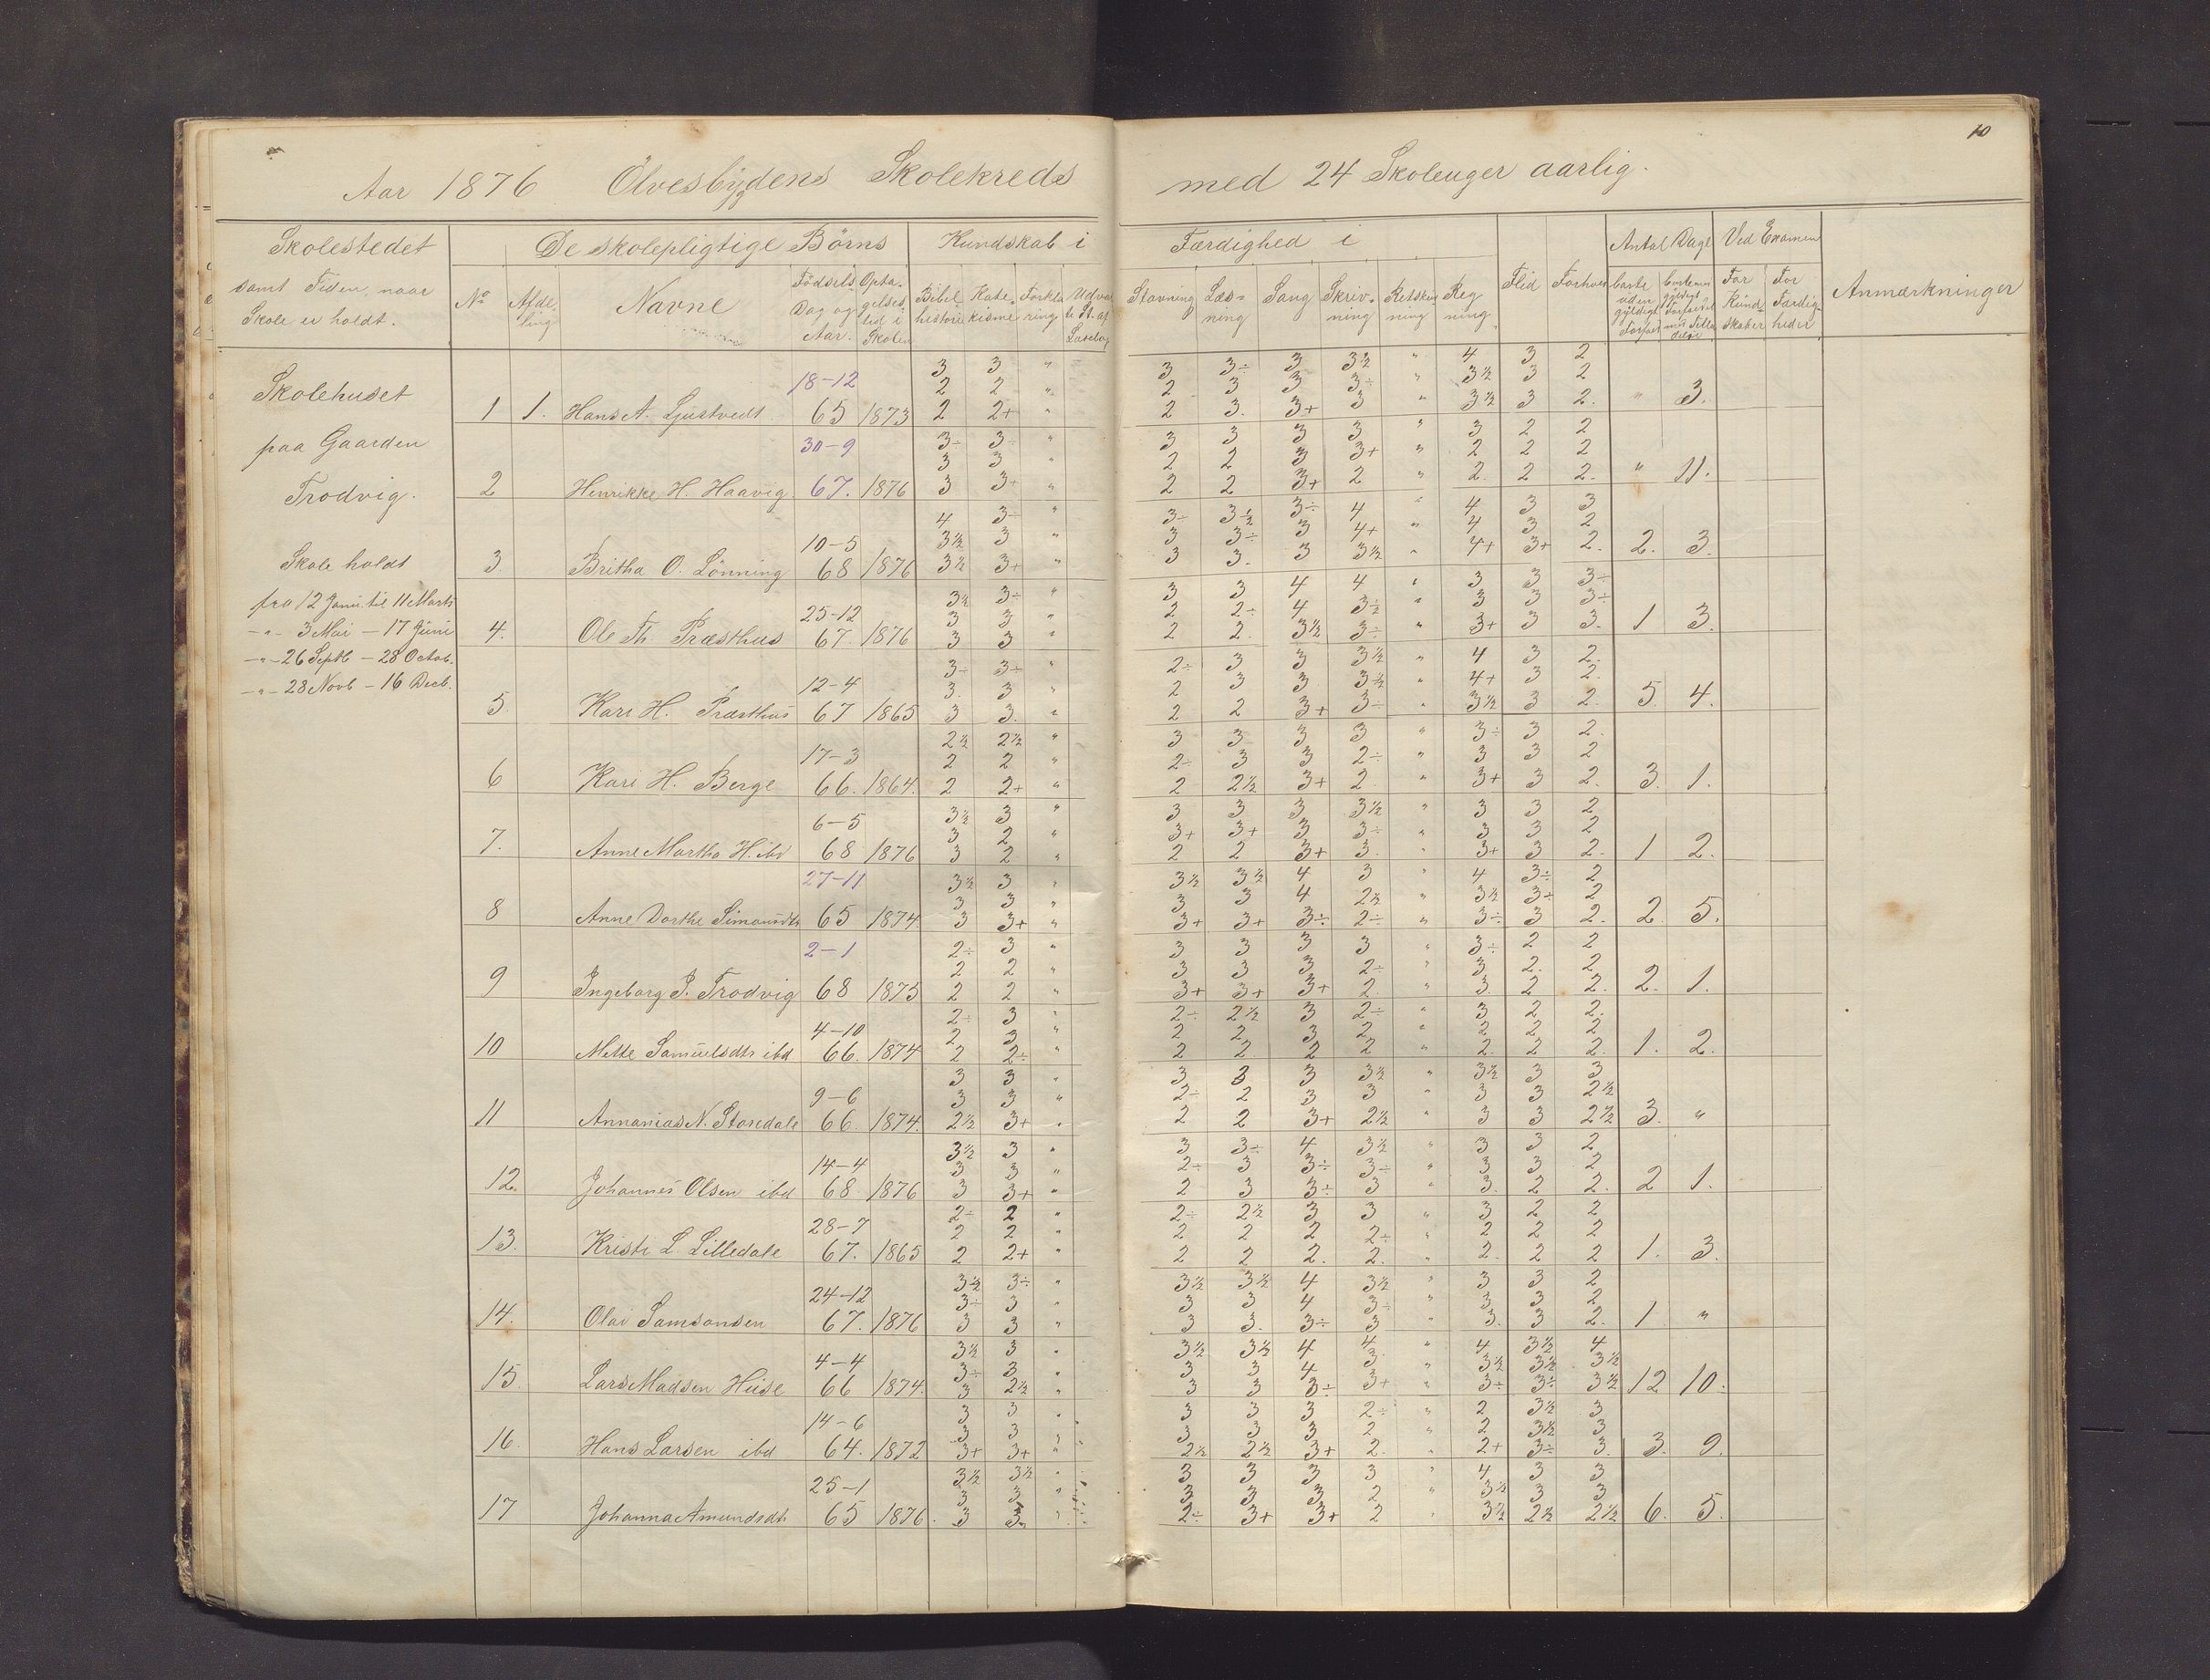 10
Aar 1876 Ølvesbygdens Skolekreds med 24 Skoleuger aarlig.
Skolestedet
samt Tiden, naar
Skole er holdt.
De skolepligtige Börns
No Afdeling Navne Födsels Dag og Aar. Optagelsestid i Skolen
Kundskab i
Bibelhistorie Katekisme Forklaring Udvalgte St. af Læsebog
Færdighed i
Stavning Læsning Sang Skrivning Retskrivning Regning
Flid Forhold
Antal Dage
borte uden gyldigt Forfald
Ved Examen
For Kundskaber For Færdigheder
Anmærkninger
Skolehuset
paa Gaarden
Trodvig.
Skole holdt
fra 12 Janu. til 11 Marts
-"- 3 Mai - 17 Juni
-"- 26 Septb - 28 Octob.
-"- 28 Novb - 16 Decb.
3 3 " 3 3÷ 3 3½ " 4 3 2
18-12 2 2 " 2 3 3 3÷ " 3½ 3 2
1 1. Hans A. 65 1873 2 2+ " 2 3. 3+ 3 " 3½ 3 2. " 3.
30-9 3÷ 3÷ " 3 3 3 3 " 3 2 2
3 3 " 2 2 3 3+ " 2 2 2
2 Henrikke H. Haavig 67. 1876 3 3+ " 2 2 3+ 2 " 2. 2 2. " 11.
4 3÷ " 3÷ 3½ 3÷ 4 " 4 3 3
10-5 3½ 3 " 3 3÷ 3 4+ " 4 3 2
3 Britha O. Lönning 68 1876 3½ 3+ " 3 3. 3 3½ " 4+ 3+ 2. 2. 3.
3½ 3÷ " 3 3 4 4 " 3 3 3÷
25-12 3 3 " 2 2÷ 4 3½ " 3 3 3÷
4. Ole Th. Præsthus 67. 1876 3 3 " 2 2. 3½ 3÷ " 3+ 3 3. 1 3.
3÷ 3÷ " 2÷ 3 3 3½ " 4 3 2.
12-4 3. 3 " 2 3 3 3½ " 4+ 3 2.
5. Kari H. Præsthus 67 1865 3 3. " 2 2 3+ 3÷ " 3½ 3 2. 5. 4.
2½ 2½ " 3 3 3 3 " 3÷ 3 2.
17-3 2 2 " 2÷ 3 3 2÷ " 3 3 2
6 Kari H. Berge 66. 1864. 2 2+ " 2 2½ 3+ 2. " 3+ 3 2. 3. 1.
3½ 3 " 3 3 3 3½ " 3 3 2
6-5 3 2 " 3+ 3+ 3 3÷ " 3 3 2
7. Anne Martha H. ibd 68 1876 3 2 " 2 2 3+ 3. " 3+ 3 2. 1 2.
27-11 3½ 3 " 3½ 3½ 4 3 " 4 3÷ 2
3 3 " 3 3 4 2½ " 3½ 3÷ 2
8 Anne Dorthe Simonsdtr 65 1874. 3 3+ " 3+ 3+ 3÷ 2÷ " 3÷ 3 2. 2. 5.
2-1 2÷ 3 " 3 3 3 3 " 3÷ 2 2
2 2 " 3 3 3 2÷ " 3 2. 2
9 Ingeborg J. Trodvig 68 1875 2 2 " 3+ 3+ 3+ 2. " 3. 2 2. 2. 1.
2÷ 3 " 2÷ 2½ 3 2÷ " 3 2 2.
4-10 2 3 " 2 2 3 2 " 2 2 2
10 Mette Samuelsdtr ibd 66. 1874 2 2÷ " 2 2. 2 2 " 2. 2 2. 1. 2.
3 3 " 3 3 3 3½ " 3½ 3 3
9-6 3 3 " 2÷ 2 3 3 " 3 3 2½
11 Annanias N. Storedale 66. 1874. 2½ 3+ " 2 2 3+ 2½ " 3 3 2½ 3. "
3½ 3 " 3 3÷ 4 3½ " 3 3 2
14-4 3 3 " 2÷ 3 3÷ 3÷ " 3 3 2
12. Johannes Olsen ibd 68 1876 3 3+ " 2 3 3÷ 3 " 3. 2 2. 2 1.
2÷ 2 " 2÷ 2½ 3 3 " 3 2 2
28-7 2 2 " 2 2 2 2÷ " 2 2 2
13. Kristi L. Lilledale 67. 1865 2 2+ " 2 2 2. 2. " 2. 2 2 1. 3.
3½ 3÷ " 3½ 3½ 4 3½ " 3 3 2
24-12 3÷ 3 " 3 3 4 3÷ " 3 3 2
14. Olai Samsonsen 67. 1876 3 3 " 3 3. 3÷ 3 " 3. 3 2. 1 "
3½ 3 " 3½ 3½ 4 4 " 4 3½ 4
4-4 3÷ 3 " 3 3 4 3. " 3½ 3½ 3½
15. Lars Madsen Huse 66 1874. 3 2½ " 3 3 3÷ 3+ " 3÷ 3÷ 3½ 12 10.
3 3 " 3 3 3 2÷ " 2 3½ 3
14-6 3 3 " 3 3 3 2 " 2 3½ 3
16. Hans Larsen ibd 64. 1872 3+ 3+ " 2½ 2½ 3+ 2. " 2+ 3÷ 3. 3. 9.
3½ 3½ " 3 3 3 3 " 4 3 3
25-1 3 3 " 3 3 3 2 " 3½ 3 3
17 Johanna Amundsdtr 65 1876. 3 3. " 2÷ 3+ 3+ 2 " 3½ 2½ 2½ 6. 5.